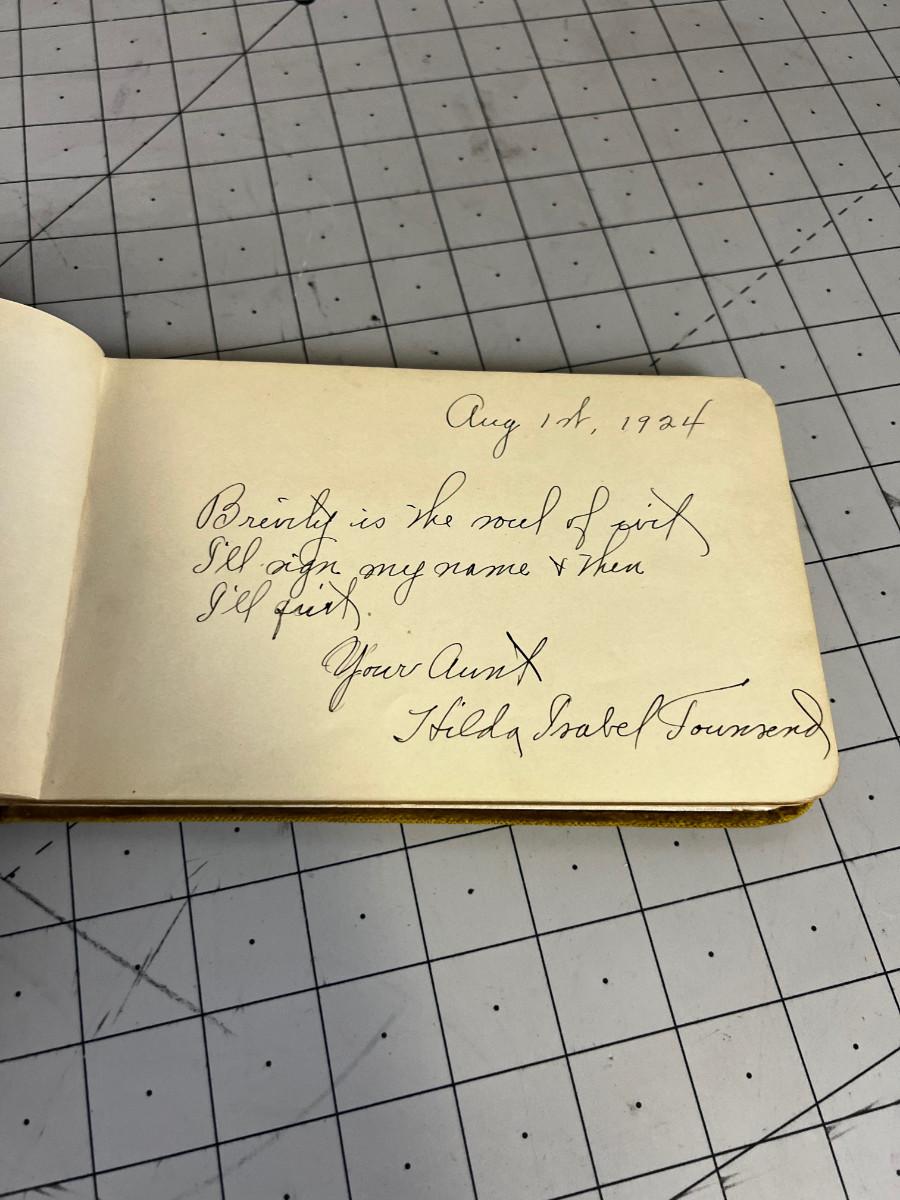 Aug 1st, 1924
Brevity is the soul of wit
I'll sign my name & then
I'll quit.
Your Aunt
Hilda Isabel Townsend